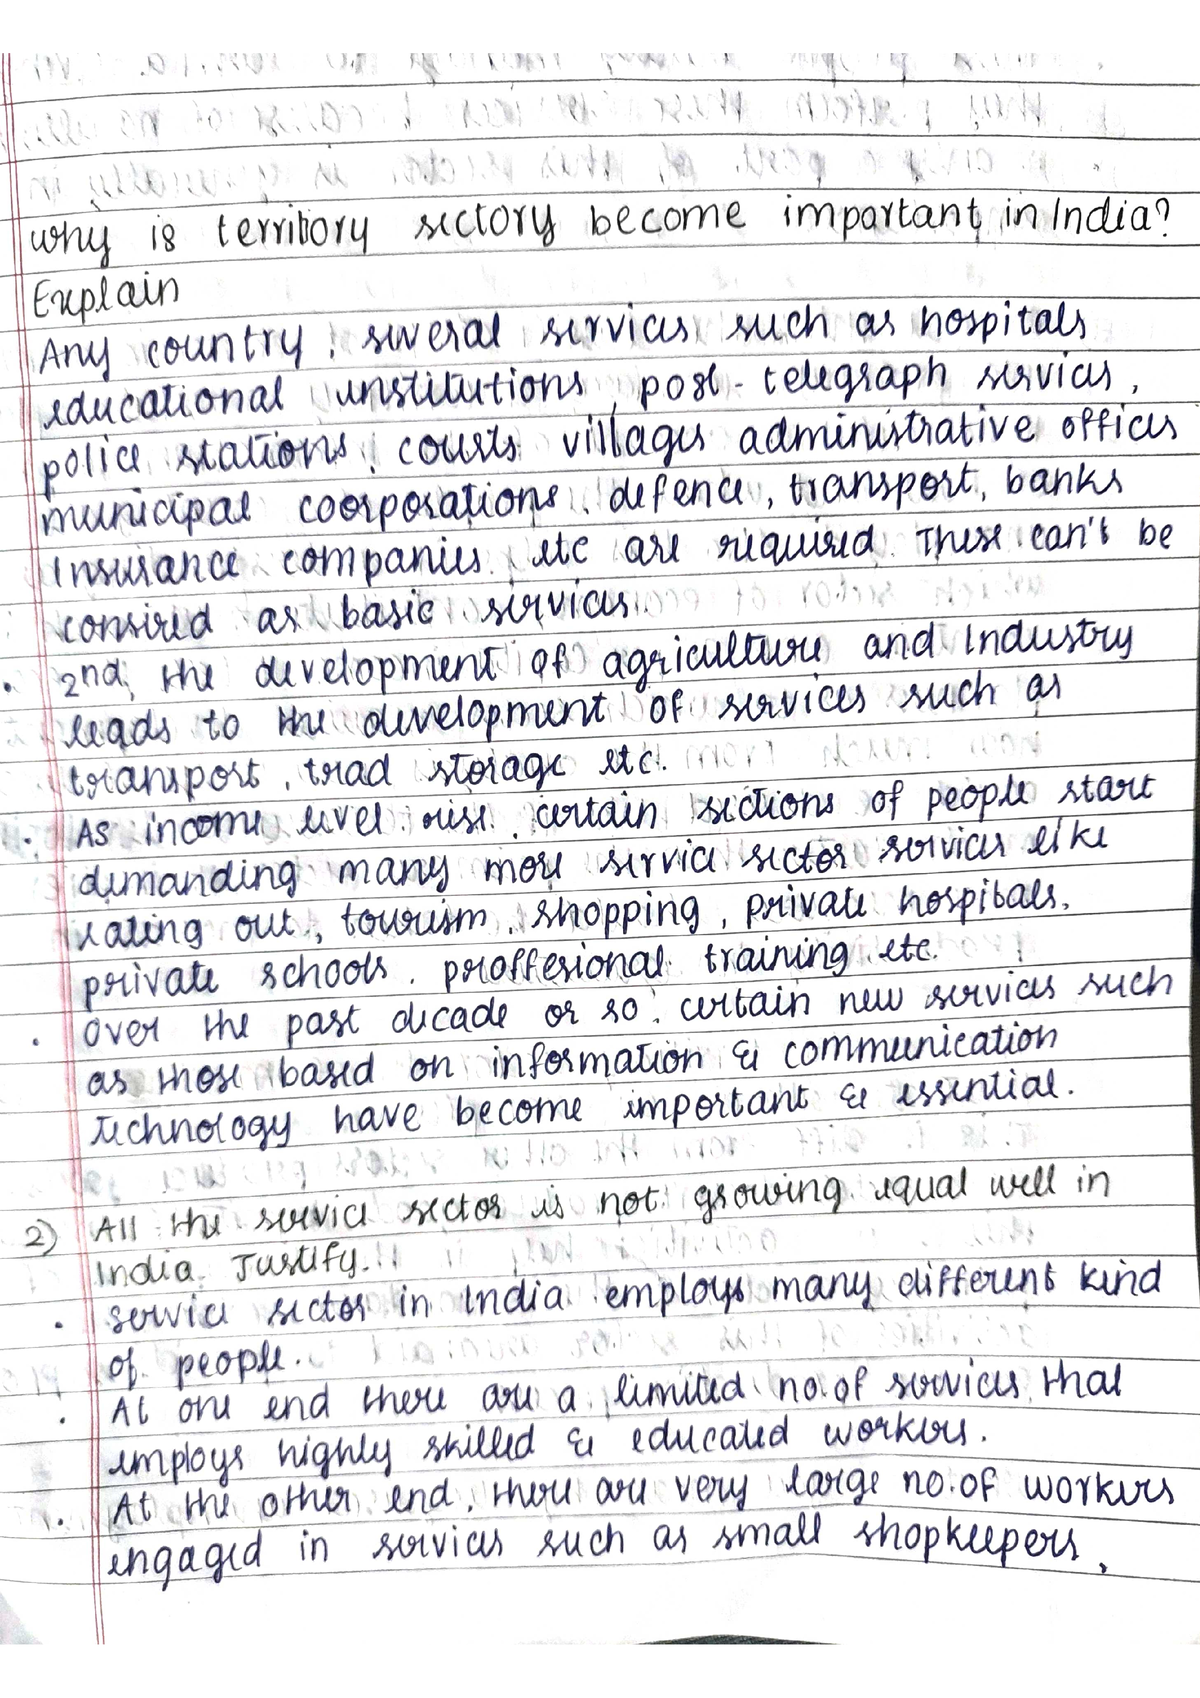 why is territory sectory become important in India?
Explain
Any country, several services such as hospitals
educational institutions, post-telegraph services,
police stations, courts villages administrative offices
municipal coorporations, defence, transport, banks
Insurance companies, etc are required. These can't be
consired as basic services
• 2nd, the development of agriculture and Industry
leads to the development of services such as
transport, trad storage etc.
• As income level rise, certain sections of people start
demanding many more service sector services like
eating out, tourism, shopping, private hospitals,
private schools, proffesional training etc.
• Over the past decade or so, certain new services such
as those based on information & communication
technology have become important & essential.
2) All the service sector is not growing equal well in
India. Justify.
• Service sector in India employs many different kind
of people.
• At one end there are a limited no. of services that
employs highly skilled & educated workers.
• At the other end, there are very large no. of workers
engaged in services such as small shopkeepers,